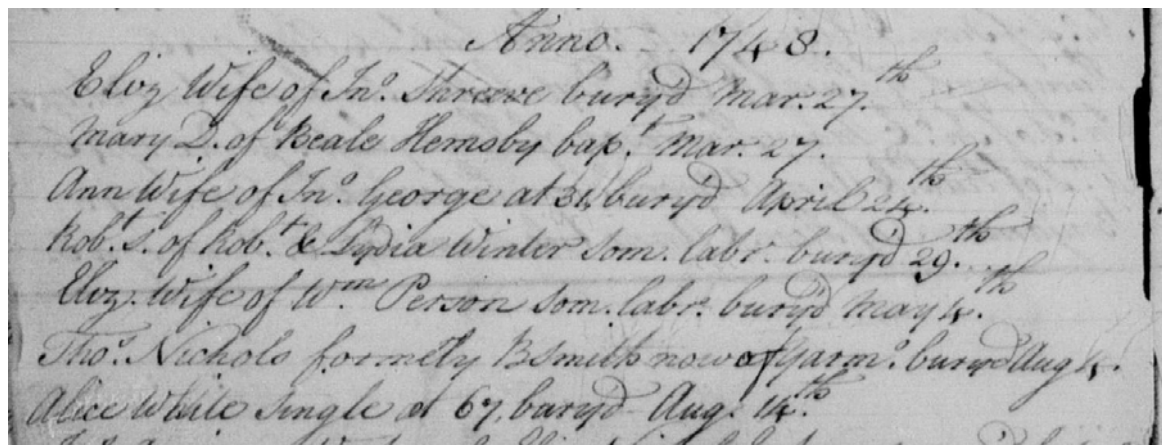 Anno. 1748.
Eliz Wife of Jno. Shreeve buryd Mar. 27.th
Mary D. of Beale Hemsby bapt. Mar. 27.
Ann Wife of Jno. George at 31, buryd April 24.th
Robt. S. of Robt. & Lydia Winter Som. labr. buryd 29.th
Eliz. Wife of Wm Person Som. labr. buryd May 4.th
Thos. Nichols formerly BSmith now of Yarmo. buryd Aug 4.
Alice White Single at 67, buryd Aug. 14.th